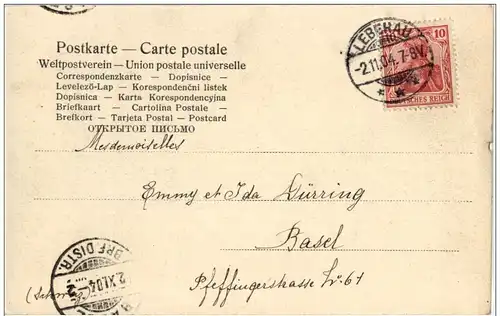 Postkarte — Carte postale
Weltpostverein — Union postale universelle
Correspondenzkarte – Dopisnice –
Levelező-Lap – Korespondenční listek
Dopisnica – Karta Korespondencyjna
Briefkaart – Cartolina Postale –
Brefkort – Tarjeta Postal – Postcard
ОТКРЫТОЕ ПИСЬМО
LEBERAU
-2.11.04.7-8V.
10
DEUTSCHES REICH
Mesdemoiselles
Emmy et Ida Dürring
Basel
Pfeffingerstrasse No 61
BRF. DISTR.
2.XI.04